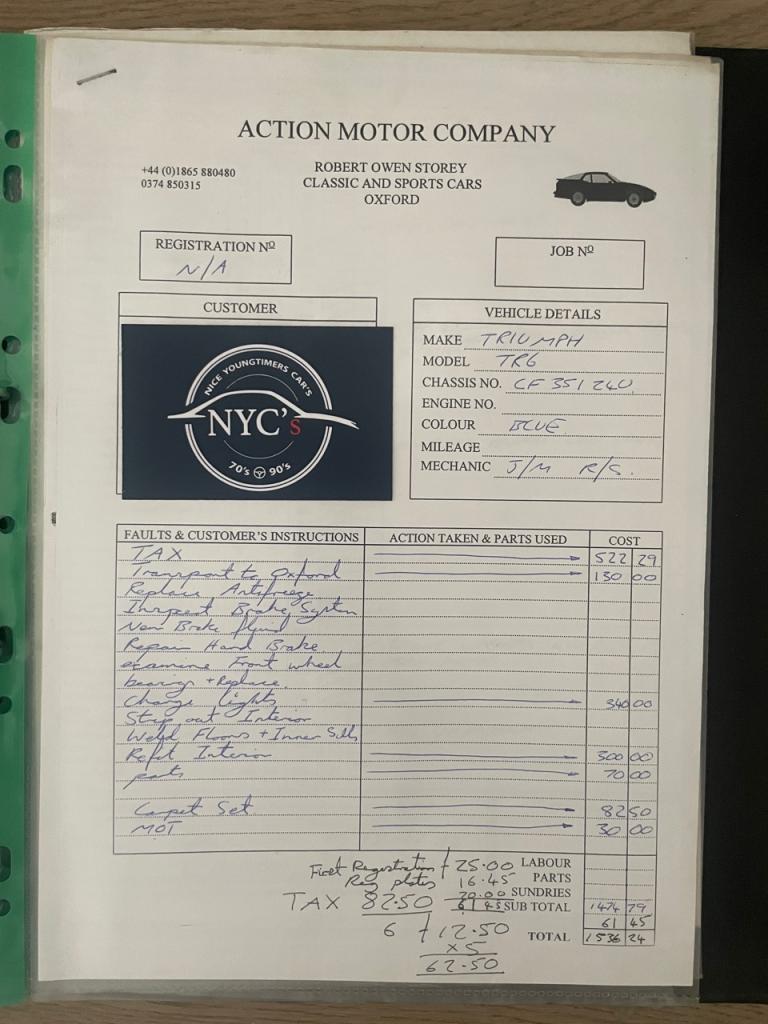 ACTION MOTOR COMPANY
+44 (0)1865 880480
0374 850315
ROBERT OWEN STOREY
CLASSIC AND SPORTS CARS
OXFORD
REGISTRATION Nº
N/A
JOB Nº
CUSTOMER
NICE YOUNGTIMERS CAR'S
NYC's
70's 90's
VEHICLE DETAILS
MAKE TRIUMPH
MODEL TR6
CHASSIS NO. CF 35124U
ENGINE NO.
COLOUR BLUE
MILEAGE
MECHANIC J/M R/S.
FAULTS & CUSTOMER'S INSTRUCTIONS ACTION TAKEN & PARTS USED COST
TAX 522 29
Transport to Oxford 130 00
Replace Antifreeze
Inspect Brake System
New Brake fluid
Repair Hand Brake
examine Front wheel
bearings + Replace.
Change lights 340 00
Strip out Interior
Weld Floors + Inner Sills
Refit Interior 300 00
parts 70 00
Carpet Set 82 50
MOT 30 00
First Registration £25.00 LABOUR
Reg plates 16.45 PARTS
20.00 SUNDRIES
TAX 82.50 61 45 SUB TOTAL 1474 79
61 45
6 / 12.50 TOTAL 1536 24
x5
62.50